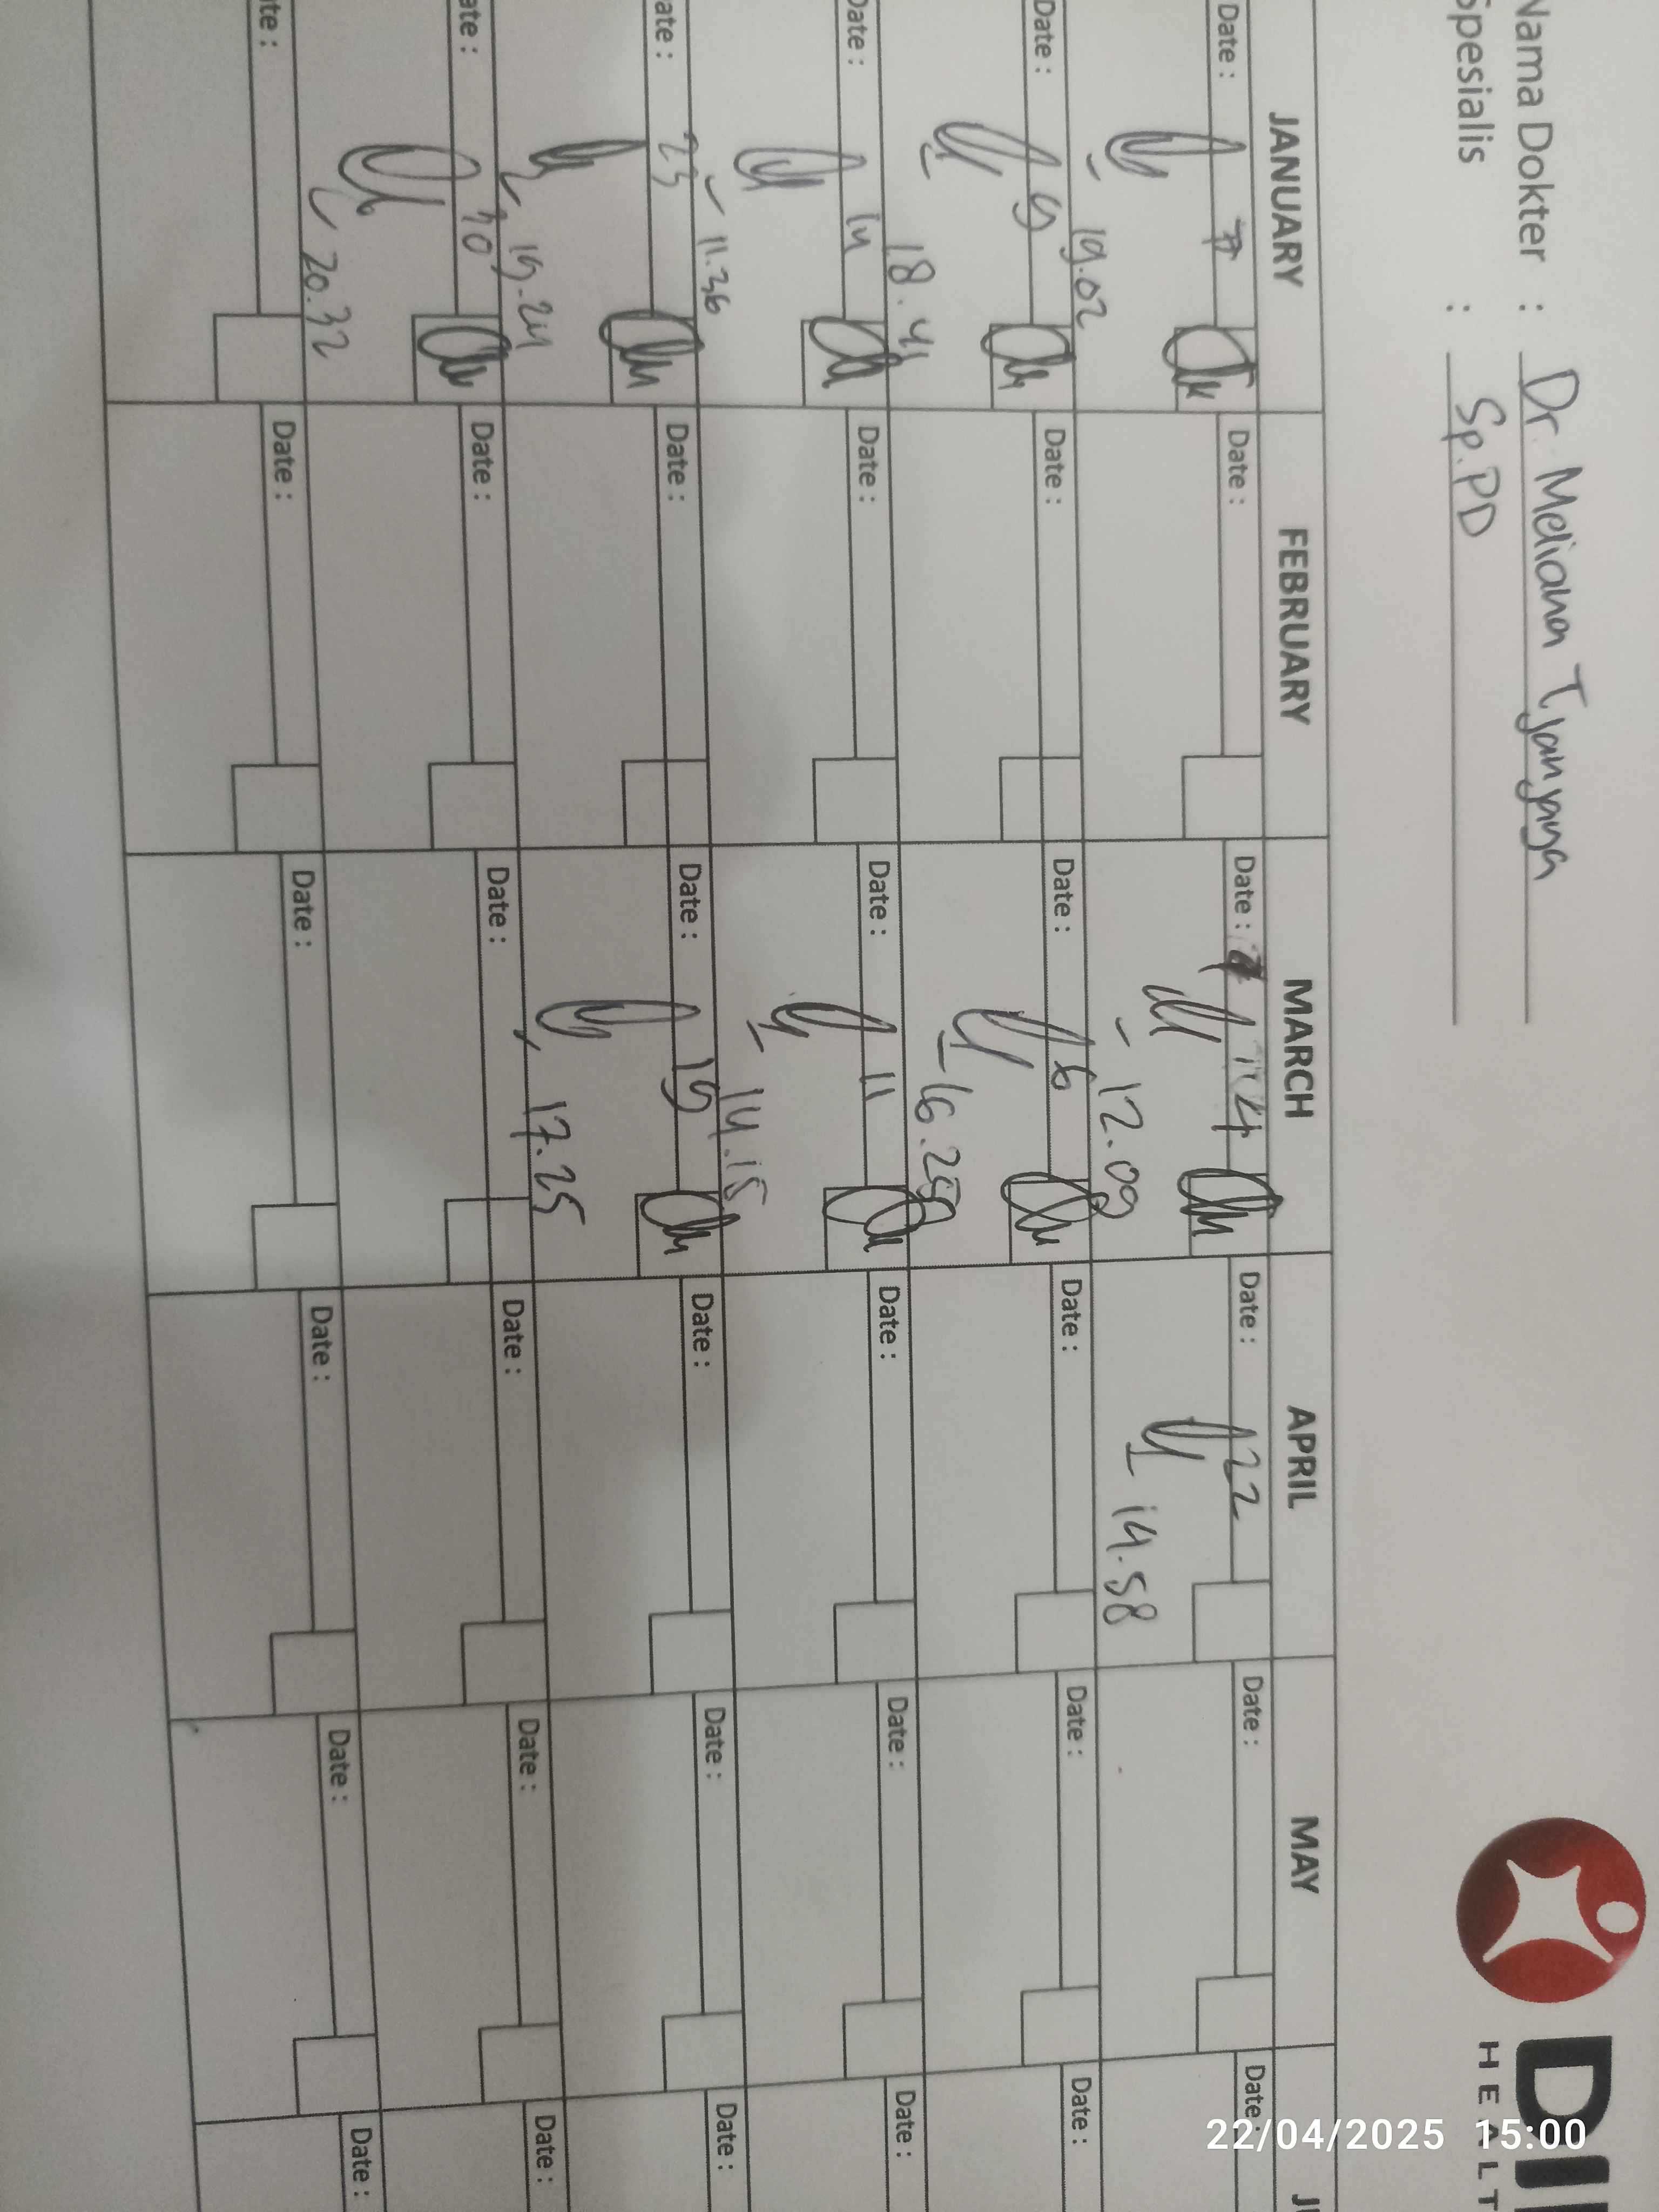 Nama Dokter : Dr. Meliana Tjanyaya
Spesialis : Sp.PD
HEALT
JANUARY FEBRUARY MARCH APRIL MAY
Date : 7 Date : Date : 4 Date : 22 Date : Date :
19.02 12.09 14.58
Date : 9 Date : Date : 6 Date : Date : Date :
18.41 16.25
Date : 14 Date : Date : 11 Date : Date : Date :
11.36 14.15
ate : 23 Date : Date : 19 Date : Date : Date :
19.24 17.25
ate : 30 Date : Date : Date : Date : Date :
20.32
te : Date : Date : Date : Date : Date :
22/04/2025 15:00